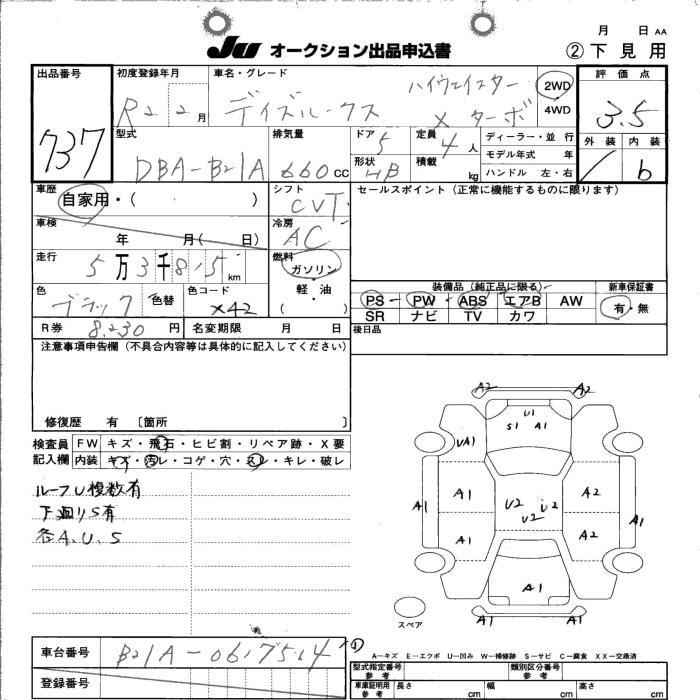 JU オークション出品申込書
月 日 AA
② 下見用
出品番号
737
初度登録年月
R2 2月
車名・グレード
デイズルークス ハイウェイスター X ターボ
2WD
4WD
評価点
3.5
外装 内装
/ b
型式
DBA-B21A
排気量
660cc
ドア
5
形状
HB
定員
4人
積載
kg
ディーラー・並行
モデル年式 年
ハンドル 左・右
車歴
自家用・( )
シフト
CVT
セールスポイント(正常に機能するものに限ります)
車検
年 月( 日)
冷房
AC
走行
5万3千815km
燃料
ガソリン・軽・油
( )
色
ブラック
色替
色コード
X42
装備品(純正品に限る)
PS PW ABS エアB AW
SR ナビ TV カワ
新車保証書
有・無
R券 8,230円
名変期限 月 日
後日品
注意事項申告欄(不具合内容等は具体的に記入してください)
修復歴 有 〔箇所 〕
検査員記入欄
FW キズ・飛石・ヒビ割・リペア跡・X要
内装 キズ・汚レ・コゲ・穴・スレ・キレ・破レ
ルーフU複数有
下廻りS有
各A.U.S
A2 A2
U1
S1 A1
UA1
A1 A1 A2
U2 U2
U2
A1 A1
A1 A2
A1
A1 A1
スペア
A-キズ E-エクボ U-凹み W-補修跡 S-サビ C-腐食 XX-交換済
車台番号
B21A-0617514
①
登録番号
型式指定番号
参考
類別区分番号
参考
車庫証明用
参考
長さ cm
幅 cm
高さ cm